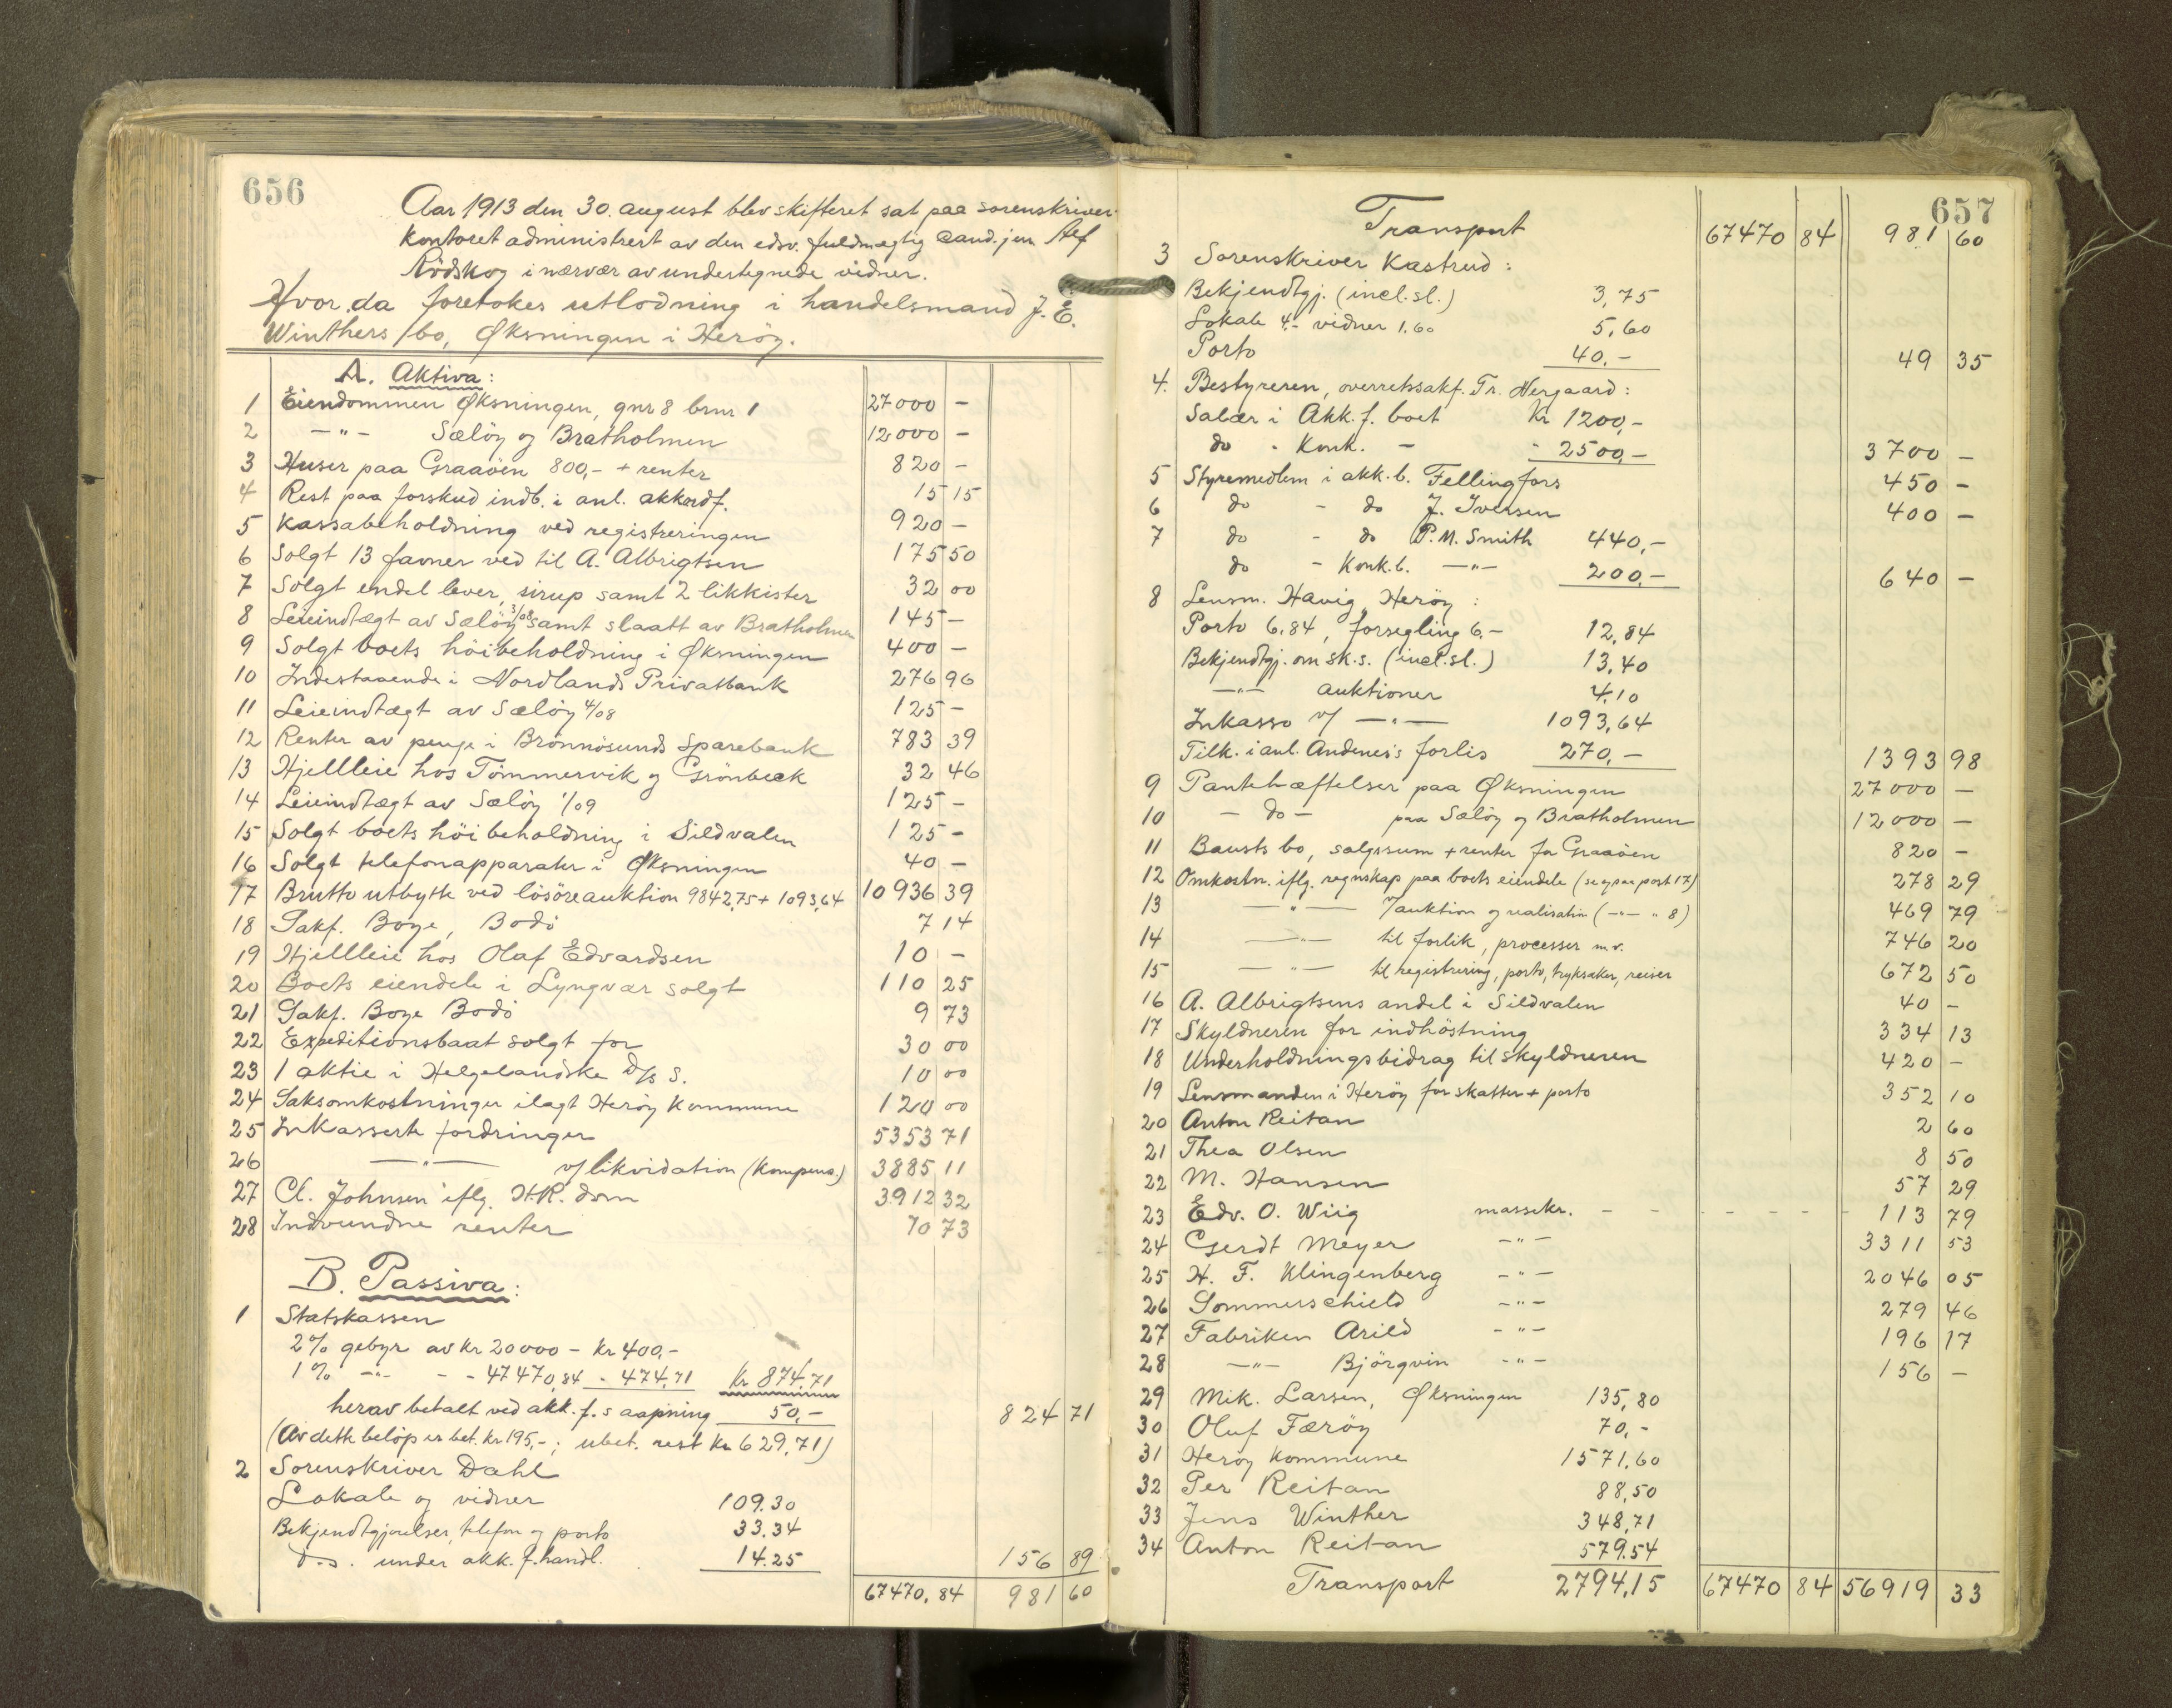 656
Aar 1913 den 30. august blev skifteret sat paa sorenskriver-
kontoret administrert av den edsv. fuldmægtig cand. jur.
Rödskog i nærvær av undertegnede vidner.
Hvor da foretokes utlodning i handelsmand J. E.
Winthers bo, Øksningen i Heröy.
A. Aktiva:
1 Eiendommen Øksningen, gnr 8 brnr 1 27000 -
2 -"- Sælöy og Bratholmen 12000 -
3 Huser paa Graaöen 800,- + renter 820 -
4 Rest paa forskud indb. i anl. akkordf. 15 15
5 Kassabeholdning ved registreringen 920 -
6 Solgt 13 favner ved til A. Albrigtsen 175 50
7 Solgt endel lever, sirup samt 2 likkister 32 00
8 Leieindtægt av Sælöy 3/08 samt slaatt av Bratholmen 145 -
9 Solgt boets höibeholdning i Øksningen 400 -
10 Indestaaende i Nordlands Privatbank 276 96
11 Leieindtægt av Sælöy 4/08 125 -
12 Renter av penge i Brönnösunds Sparebank 783 39
13 Hjellleie hos Tömmervik og Grönbeck 32 46
14 Leieindtægt av Sælöy 1/09 125 -
15 Solgt boets höibeholdning i Sildvalen 125 -
16 Solgt telefonapparater i Øksningen 40 -
17 Brutto utbytte ved lösöreauktion 9842,75 + 1093,64 10936 39
18 Sakf. Boye, Bodö 7 14
19 Hjellleie hos Olaf Edvardsen 10 -
20 Boets eiendele i Lyngvær solgt 110 25
21 Sakf. Boye Bodö 9 73
22 Expeditionsbaat solgt for 30 00
23 1 aktie i Helgelandske D/s S. 10 00
24 Saksomkostninger ilagt Heröy kommune 120 00
25 Inkasserte fordringer 5353 71
26 -"- v/ likvidation (kompens.) 3885 11
27 Cl. Johnsen iflg. H.R. dom 3912 32
28 Indvundne renter 70 73
B. Passiva:
1 Statskassen
2% gebyr av kr 20000 - kr 400,-
1% -"- - - 47470,84 - 474,71 kr 874,71
herav betalt ved akk. f. s aapning 50,- 824 71
(Av dette beløp er bet. kr 195,-; ubet. rest kr 629,71)
2 Sorenskriver Dahl
Lokale og vidner 109.30
Bekjendtgjørelser, telefon og porto 33.34
d.s. under akk. f. handl. 14.25 156 89
67470,84 981 60
657
Transport 67470 84 981 60
3 Sorenskriver Kastrud:
Bekjendtgj. (incl. sl.) 3,75
Lokale 4.- vidner 1.60 5,60
Porto 40.- 49 35
4. Bestyreren, overretssakf. Tr. Nergaard:
Salær i Akk. f. boet Kr 1200,-
do - Konk. - - 2500,- 3700 -
5 Styremedlem i akk. b. Fellingfors 450 -
6 do - do J. Iversen 400 -
7 do - do P. M. Smith 440,-
do - Konk. b. -"- 200,- 640 -
8 Lensm. Havig, Heröy:
Porto 6.84, forsegling 6.- 12,84
Bekjendtgj. om sk. s. (incl. sl.) 13,40
-"- auktioner 4,10
Inkasso v/ -"- 1093,64
Tilk. i anl. Andenes's forlis 270,- 1393 98
9 Pantehæftelser paa Øksningen 27000 -
10 - do - paa Sælöy og Bratholmen 12000 -
11 Bausts bo, salgssum + renter for Graaöen 820 -
12 Omkostn. iflg. regnskap paa boets eiendele (se ogsaa post 17) 278 29
13 -"- auktion og realisation (-"- " 8) 469 79
14 -"- til forlik, processer m.v. 746 20
15 -"- til registrering, porto, tryksaker, reiser 672 50
16 A. Albrigtsens andel i Sildvalen 40 -
17 Skyldneren for indhöstning 334 13
18 Underholdningsbidrag til skyldneren 420 -
19 Lensmanden i Heröy for skatter + porto 352 10
20 Anton Reitan 2 60
21 Thea Olsen 8 50
22 M. Hansen 57 29
23 Edv. O. Wiig massekr. - - - - - - - 113 79
24 Gerdt Meyer -"- 3311 53
25 H. F. Klingenberg -"- 2046 05
26 Sommerschield -"- 279 46
27 Fabriken Arild -"- 196 17
28 -"- Björgvin -"- 156 -
29 Mik. Larsen, Øksningen 135,80
30 Oluf Færöy 70,-
31 Heröy kommune 1571,60
32 Per Reitan 88,50
33 Jens Winther 348,71
34 Anton Reitan 579.54
Transport 2794,15 67470 84 56919 33